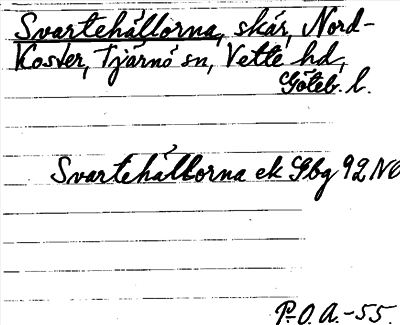 Svartehällorna, skär, Nord-
Koster, Tjärnö sn, Vette hd,
Göteb. l.
Svartehällorna ek Gbg 92 NO
P-O. A.-55.